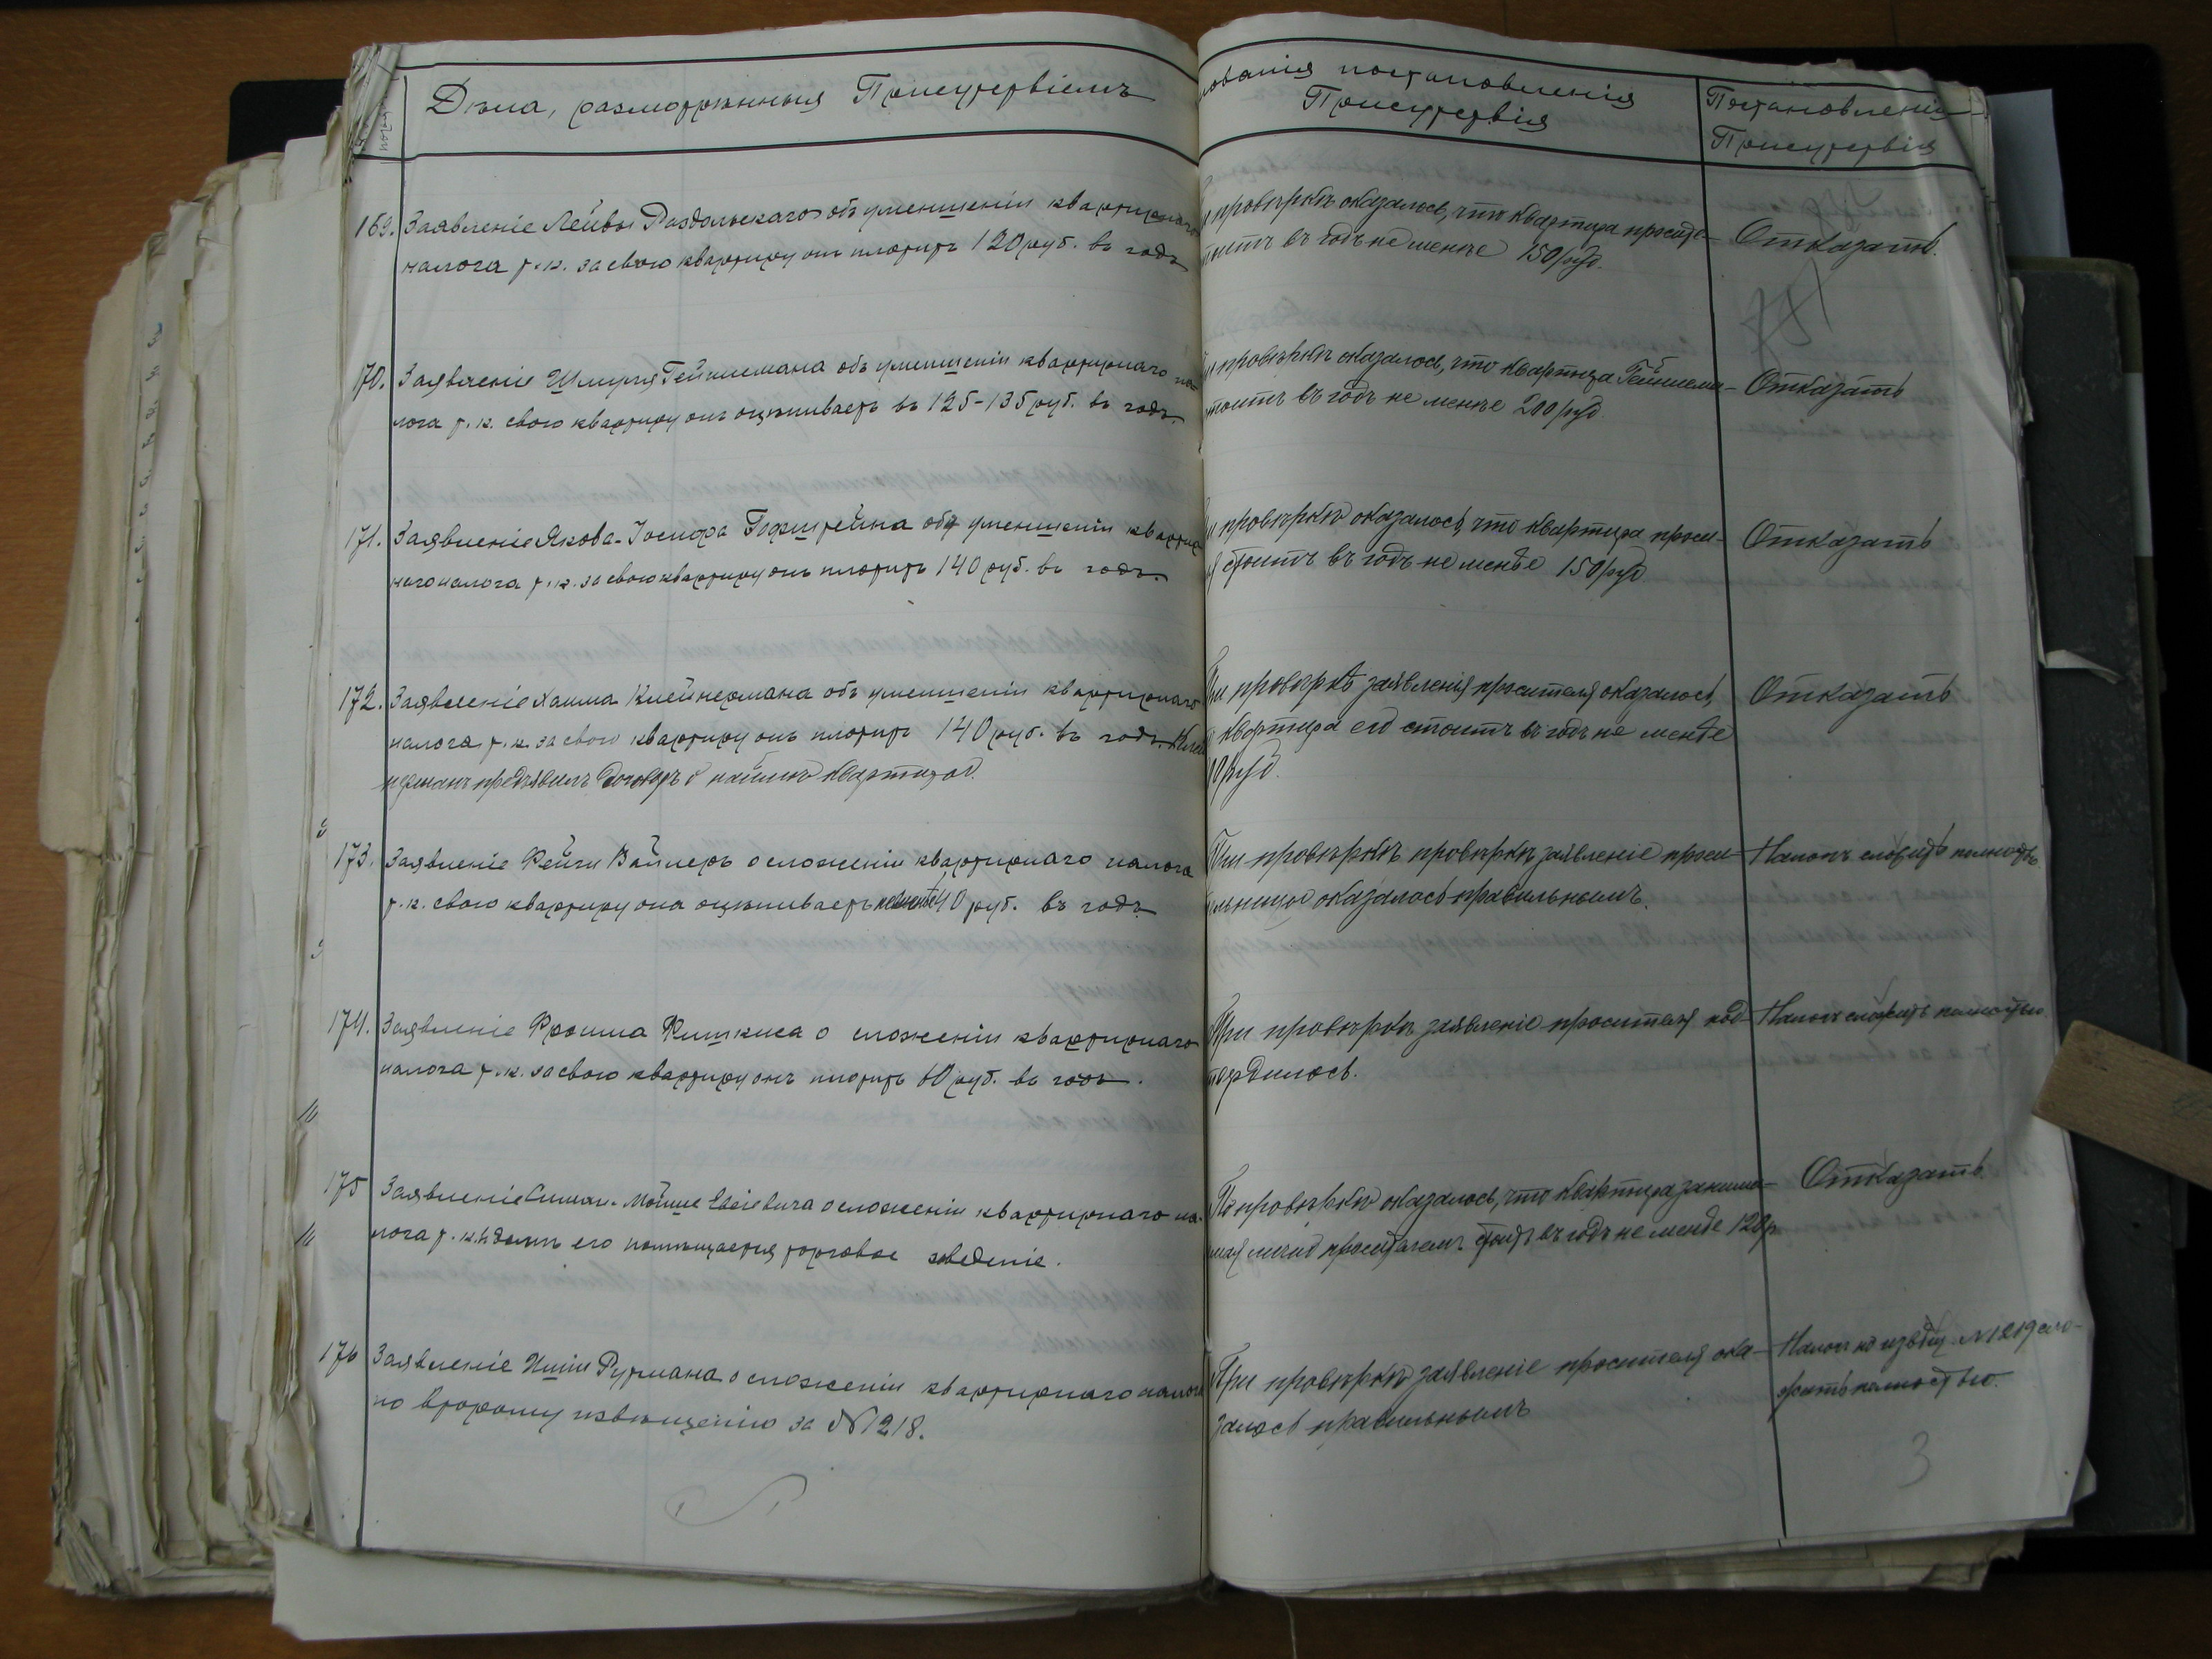 Дѣла, разсмотрѣнныя Присутствіемъ
ованія постановленія
Присутствія
Постановленія
Присутствія
169. Заявленіе Лейвы Раздольскаго объ уменьшеніи квартирнаго
налога т. к. за свою квартиру онъ платитъ 120 руб. въ годъ
и провѣркѣ оказалось, что квартира просите-
тоитъ въ годъ не менѣе 150 руб.
Отказать.
170. Заявленіе Шмуля Гейнисмана объ уменшеніи квартирнаго на-
лога т. к. свою квартиру онъ оцѣниваетъ въ 125-135 руб. въ годъ.
и провѣркѣ оказалось, что квартира Гейнисма-
тоитъ въ годъ не менѣе 200 руб.
Отказать
171. Заявленіе Якова-Іосифа Гофштейна объ уменшеніи кварти
наго налога т. к. за свою квартиру онъ платитъ 140 руб. въ годъ.
и провѣркѣ оказалось, что квартира проси-
я стоитъ въ годъ не менѣе 150 руб
Отказать
172. Заявленіе Хаима Клейнермана объ уменшеніи квартирнаго
налога т. к. за свою квартиру онъ платитъ 140 руб. въ годъ. Клей
нерманъ предъявилъ договоръ о наймѣ квартиры.
При провѣркѣ заявленія просителя оказалось,
о квартира его стоитъ въ годъ не менѣе
0 руб.
Отказать
173. Заявленіе Фейги Вайлеръ о сложеніи квартирнаго налога
т. к. свою квартиру она оцѣниваетъ не менѣе 40 руб. въ годъ.
При провѣркѣ провѣркѣ заявленіе проси-
ельницы оказалось правильнымъ.
Налогъ сложить полностью.
174. Заявленіе Фроима Фишкиса о сложеніи квартирнаго
налога т. к. за свою квартиру онъ платитъ 60 руб. въ годъ.
При провѣркѣ заявленіе просителя под-
твердилось.
Налогъ сложить полностью.
175 Заявленіе Симан-Мойше о сложеніи квартирнаго на-
лога т. к. въ домѣ его помѣщается торговое заведеніе.
По провѣркѣ оказалось, что квартира занима-
мая лично просителемъ стоитъ въ годъ не менѣе 120 р.
Отказать.
176 Заявленіе Ицки Рутмана о сложеніи квартирнаго налога
по второму извѣщенію за № 1218.
При провѣркѣ заявленіе просителя ока-
залось правильнымъ
Налогъ по извѣщ. № 1219 сло-
жить полностью.
3